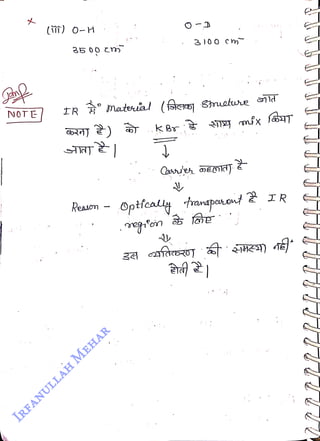 (iii) O-H O-D
3500 cm⁻ 3100 cm⁻
Imp
NOTE
IR में Material (जिसका structure ज्ञात
करना है) को KBr के साथ mix किया
जाता है |
↓
Carrier कहलाता है
⇓
Reason - Optically transparent है IR
region के लिए
⇓
इस व्यतिकरण की समस्या नहीं
होती है |
IRFANULLAH MEHAR